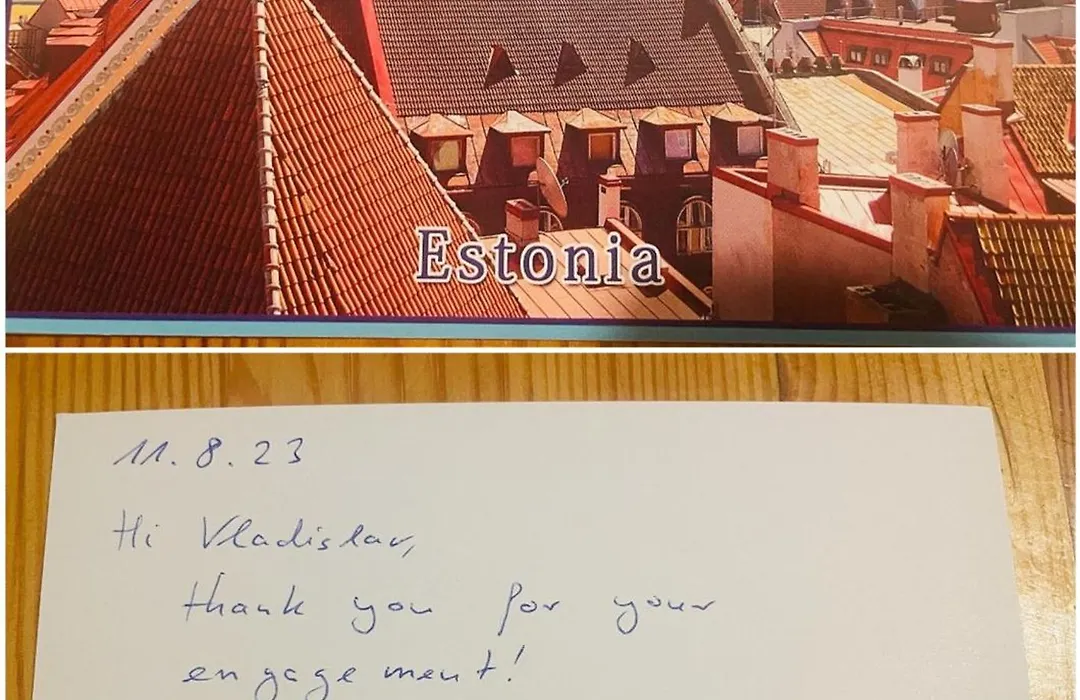 Estonia
11.8.23
Hi Vladislav,
thank you for your
engagement!